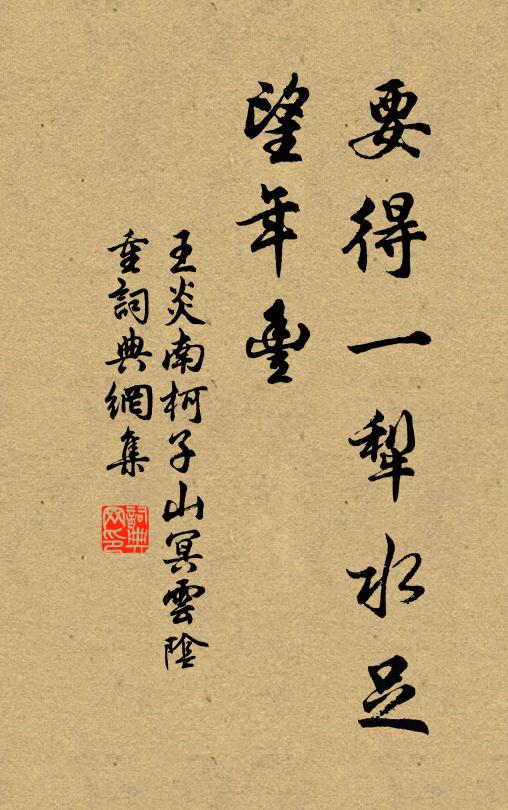 要得一犁水足
望年豐
王炎南柯子山冥雲陰
重詞典網集
詞典網印